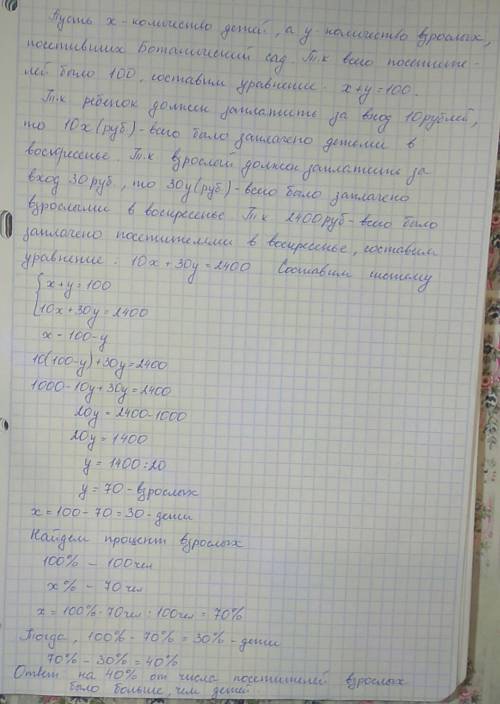 Пусть x - количество детей, а y - количество взрослых,
посетивших Ботанический сад. Т.к всего посетите-
лей было 100, составим уравнение: x+y=100.
Т.к ребёнок должен заплатить за вход 10 рублей,
то 10x (руб.) - всего было заплачено детьми в
воскресенье. Т.к взрослый должен заплатить за
вход 30 руб., то 30y (руб) - всего было заплачено
взрослыми в воскресенье. Т.к 2400 руб - всего было
заплачено посетителями в воскресенье, составим
уравнение: 10x + 30y = 2400 Составим систему
{x+y=100
10x+30y=2400
x = 100-y
10(100-y)+30y=2400
1000-10y+30y=2400
20y = 2400-1000
20y = 1400
y = 1400:20
y = 70 - взрослых
x = 100 - 70 = 30 - дети
Найдем процент взрослых
100% - 100 чел
x% - 70 чел
x = 100%·70чел : 100чел = 70%
Тогда, 100% - 70% = 30% - дети
70% - 30% = 40%
Ответ на 40% от числа посетителей взрослых
было больше, чем детей